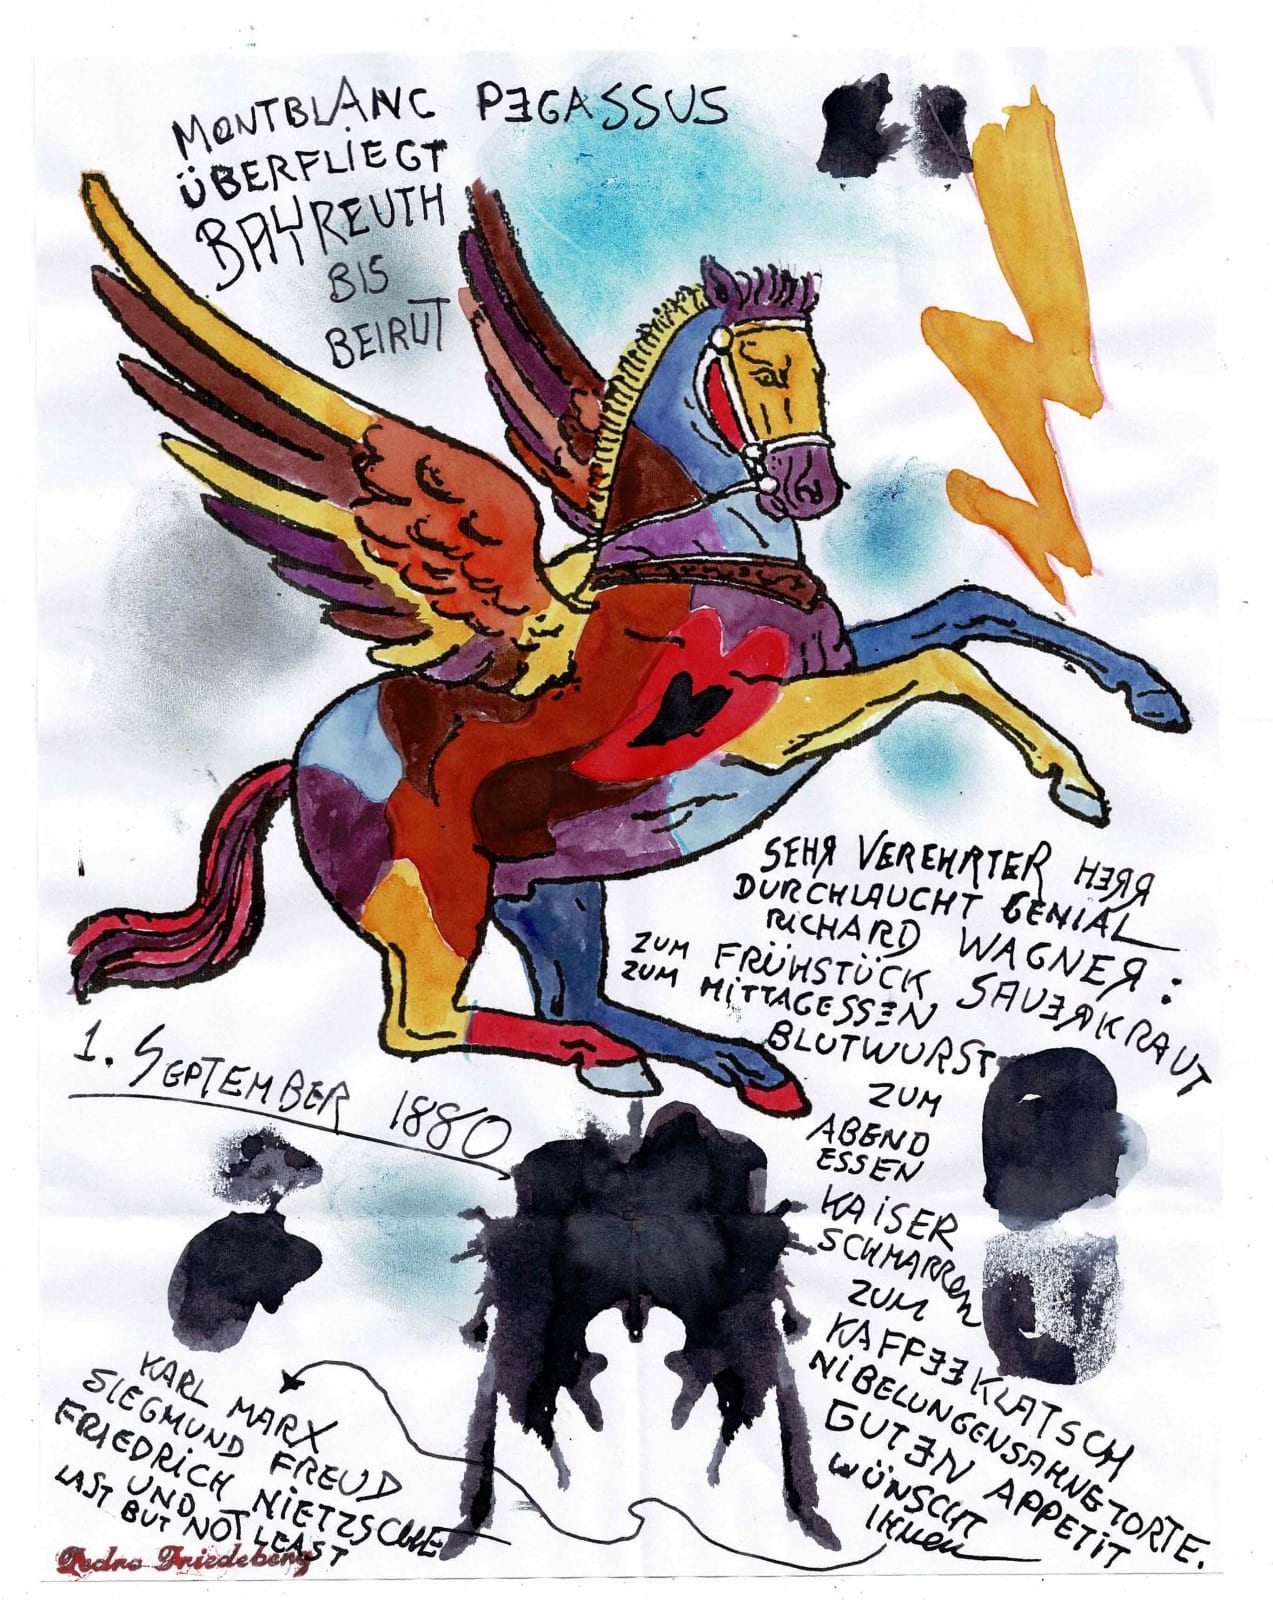 MONTBLANC PEGASSUS
ÜBERFLIEGT
BAYREUTH
BIS
BEIRUT
SEHR VEREHRTER HERR
DURCHLAUCHT GENIAL
RICHARD WAGNER:
ZUM FRÜHSTÜCK SAUERKRAUT
ZUM MITTAGESSEN
BLUTWURST
ZUM
ABEND
ESSEN
KAISER
SCHMARREN
ZUM
KAFFEEKLATSCH
NIBELUNGENSAHNETORTE.
GUTEN APPETIT
WÜNSCHT
IHNEN
1. SEPTEMBER 1880
KARL MARX
SIEGMUND FREUD
FRIEDRICH NIETZSCHE
UND
LAST BUT NOT LEAST
Pedro Friedeberg